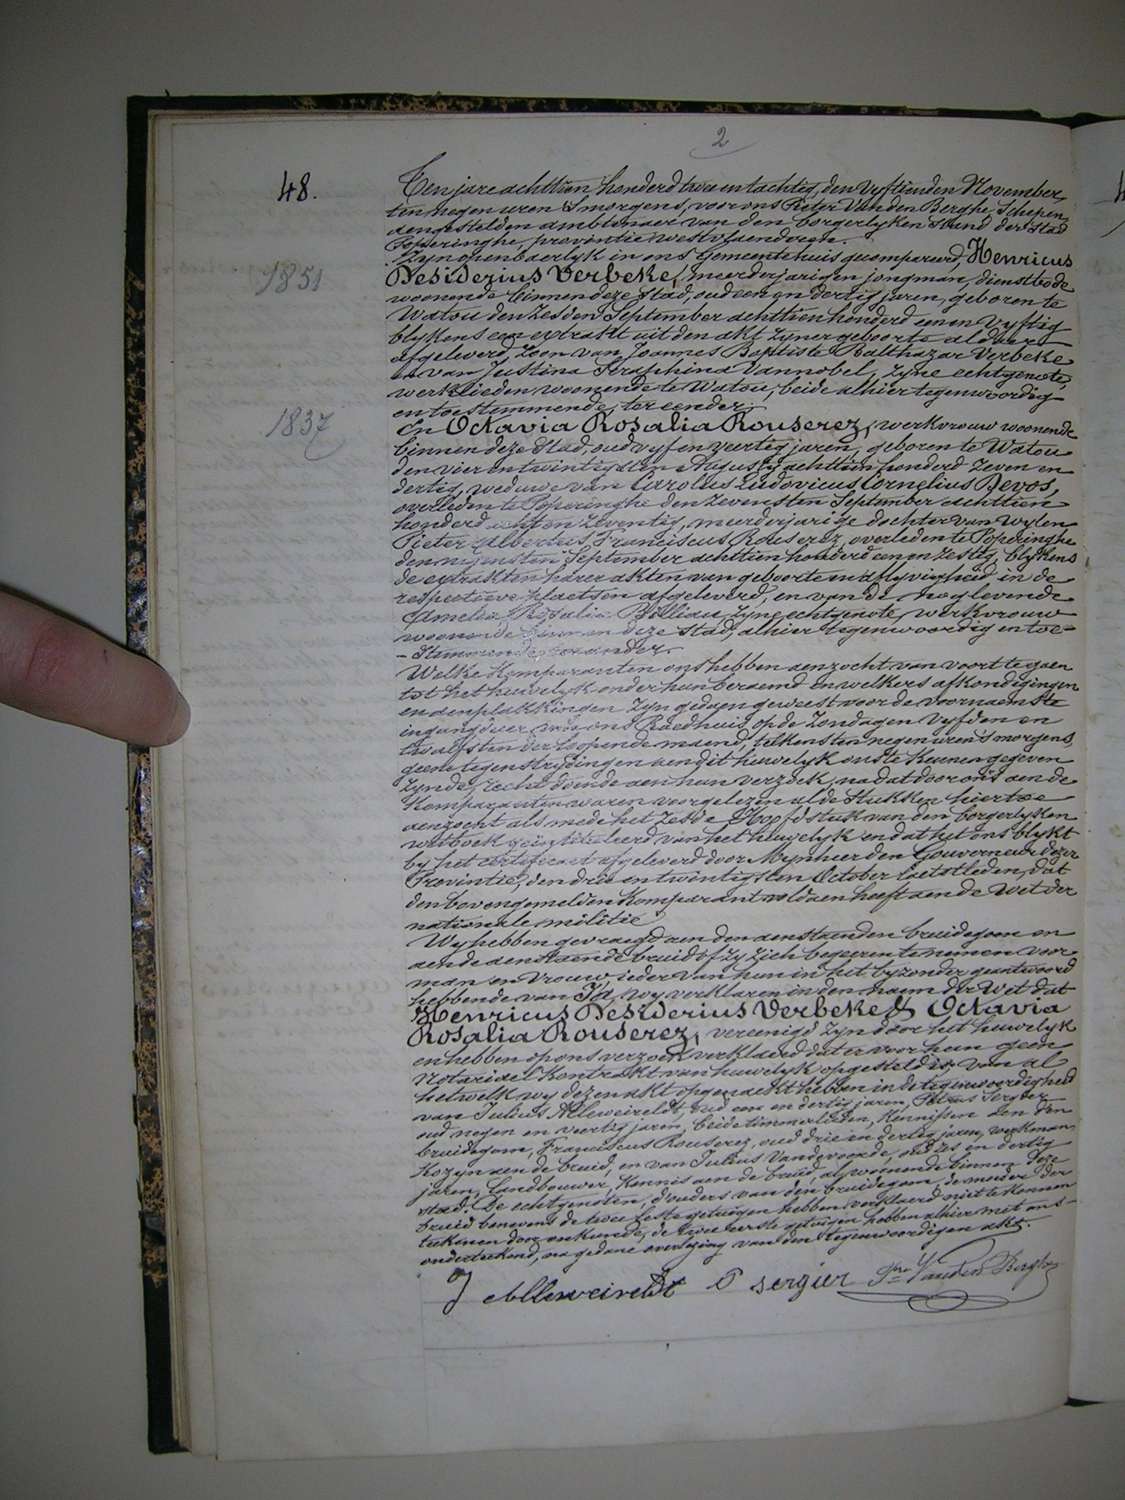 2
48.
Ten jare achttien honderd twee en tachtig, den vyftienden November,
ten negen uren 's morgens, voor ons Pieter Vanden Berghe, Schepen,
aengestelden ambtenaer van den borgerlyken Stand der Stad
Poperinghe, provintie westvlaenderen.
Zyn openbaerlyk in ons Gemeentehuis gecompareerd Henricus
1851
Desiderius Verbeke, meerderjarigen jongman, dienstbode
woonende binnen deze Stad, oud een en dertig jaren, geboren te
Watou den zesden September achttien honderd een en vyftig
blykens een extrakt uit den akt zyner geboorte aldaer
afgeleverd, zoon van Joannes Baptiste Balthazar Verbeke
en van Justina Seraphina Vannobel, zyne echtgenote,
werklieden woonende te Watou, beide alhier tegenwoordig
en toestemmende, ter eender;
1837
En Octavia Rosalia Rouserez, werkvrouw woonende
binnen deze Stad, oud vyf en veertig jaren, geboren te Watou
den vier en twintigsten Augusty achttien honderd zeven en
dertig, weduwe van Carolus Ludovicus Cornelius Devos,
overleden te Poperinghe den zevensten September achttien
honderd acht en zeventig, meerderjarige dochter van wylen
Pieter Albertus Franciscus Rouserez, overleden te Poperinghe
den negensten September achttien honderd een en zestig, blykens
de extrakten harer akten van geboorte en aflyvigheid in de
respectieve plaetsen afgeleverd, en van de nog levende
Amelia Rosalia Billiau, zyne echtgenote, werkvrouw
woonende binnen deze stad, alhier tegenwoordig en toe-
-stemmende, ter ander.
Welke Komparanten ons hebben aenzocht van voort te gaen
tot het huwelyk onder hun beraemd en welkers afkondigingen
en aenplakkingen zyn gedaen geweest voor de voornaemste
ingangdeur van ons Raedhuis, op de Zondagen vyfden en
twaelfsten der loopende maend, telkens ten negen uren 's morgens,
geene tegenstrydingen aen dit huwelyk ons te kennen gegeven
zynde, recht doende aen hun verzoek, nadat door ons aen de
Komparanten waren voorgelezen al de Stukken hiertoe
aenzocht als mede het zesde Hoofdstuk van den borgerlyken
wetboek geïntituleerd van het huwelyk en dat het ons blykt
by het certificaet afgeleverd door Mynheer den Gouverneur dezer
Provintie, den drie en twintigsten October laetstleden, dat
den bovengemelden Komparant voldaen heeft aen de Wet der
nationale militie
Wy hebben gevraegd aen den aenstaenden bruidegom en
aen de aenstaende bruid of zy zich begeeren te nemen voor
man en vrouw, ieder van hun in het byzonder geantwoord
hebbende van Ja, wy verklaren in den naem der Wet dat
Henricus Desiderius Verbeke & Octavia
Rosalia Rouserez, vereenigd zyn door het huwelyk
en hebben op ons verzoek verklaerd dat er voor hun geen
Notariael Kontrakt van huwelyk opgesteld is, van al
hetwelk wy dezen akt opgemaekt hebben in de tegenwoordigheid
van Julius Alleweireldt, oud een en dertig jaren, Petrus Sergier
oud negen en veertig jaren, beide timmerlieden, Kennissen aen den
bruidegom, Franciscus Rouserez, oud drie en dertig jaren, werkman
Kozyn aen de bruid, en van Julius Vandevoorde, oud zes en dertig
jaren, Landbouwer, Kennis aen de bruid, al woonende binnen deze
stad. De echtgenoten, d'ouders van den bruidegom, de moeder der
bruid benevens de twee leste getuigen hebben verklaerd niet te konnen
teekenen door onkunde, de twee eerste getuigen hebben alhier met ons
onderteekend, na gedane overlezing van den tegenwoordigen akt.
J Alleweireldt P sergier Pre Vanden Berghe